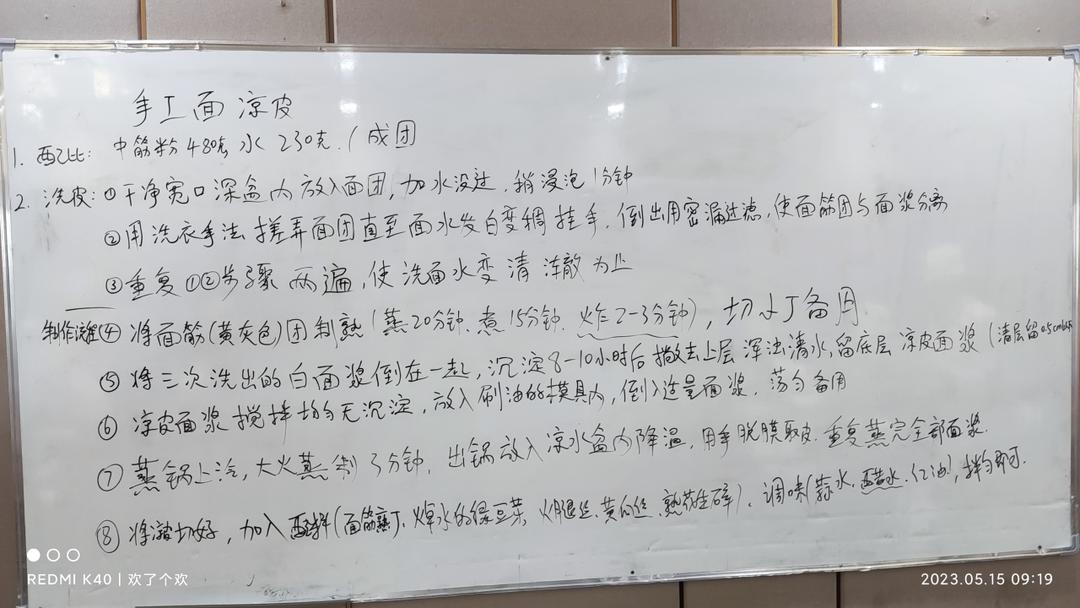 手工面凉皮
1. 配比: 中筋粉480克 水230克 / 成团
2. 洗皮: ①干净宽口深盆内放入面团, 加水没过, 稍浸泡1分钟
②用洗衣手法搓弄面团直至面水发白变稠挂手, 倒出用密漏过滤, 使面筋团与面浆分离
③重复①②步骤两遍, 使洗面水变清 为止
制作 ④ 将面筋(黄灰色)团制熟(蒸20分钟、煮15分钟、炸2-3分钟), 切小丁备用.
⑤ 将三次洗出的白面浆倒在一起, 沉淀8-10小时后撇去上层浑浊清水, 留底层凉皮面浆(清层留0.5cm
⑥ 凉皮面浆搅拌均匀无沉淀, 放入刷油的模具内, 倒入适量面浆, 荡匀备用
⑦ 蒸锅上汽, 大火蒸制3分钟, 出锅放入凉水盆内降温, 用手脱膜取皮. 重复蒸完全部面浆.
⑧ 将凉皮切好, 加入配料(面筋熟丁、焯水的绿豆芽、火腿丝、黄瓜丝、熟花生碎), 调味(蒜水、醋水、红油), 拌匀即可.
REDMI K40 | 欢了个欢
2023.05.15 09:19